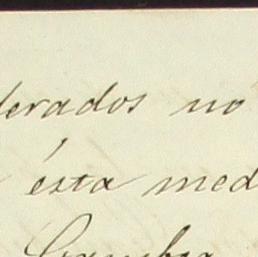 derados no
ésta med